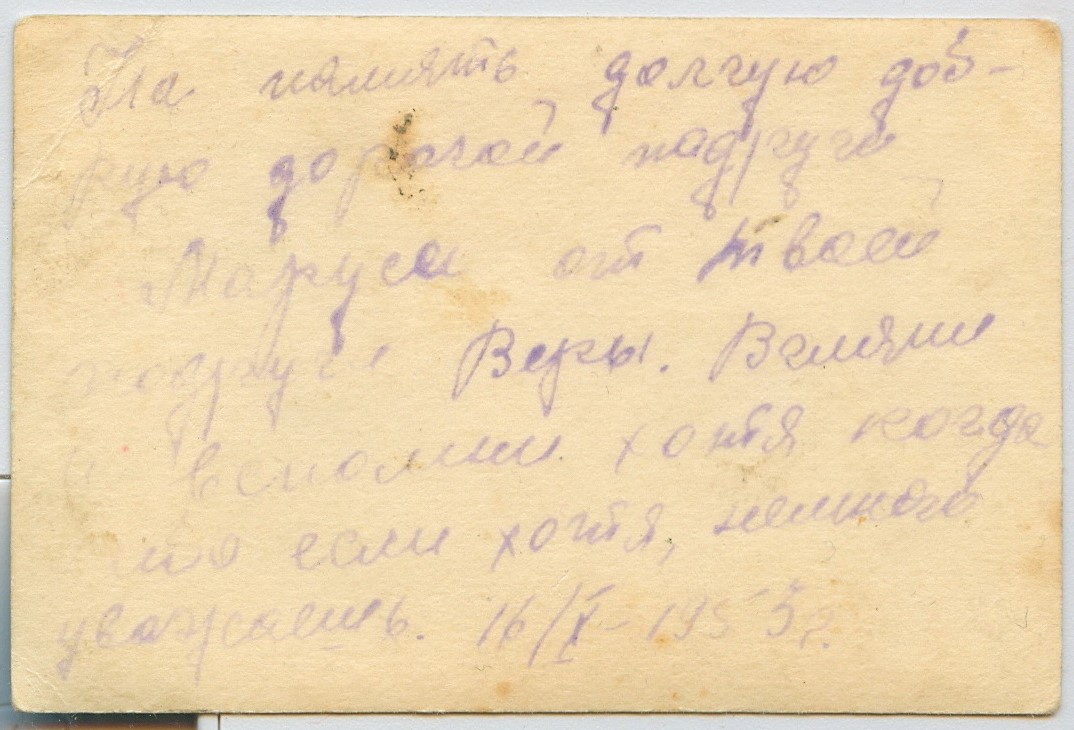 На память долгую доб-
рую дорогой падруги
Маруси от твоей
подруги Веры. Взгляни
и вспомни хотя когда
то если хотя, немного
уважаешь. 16/X-1953г.